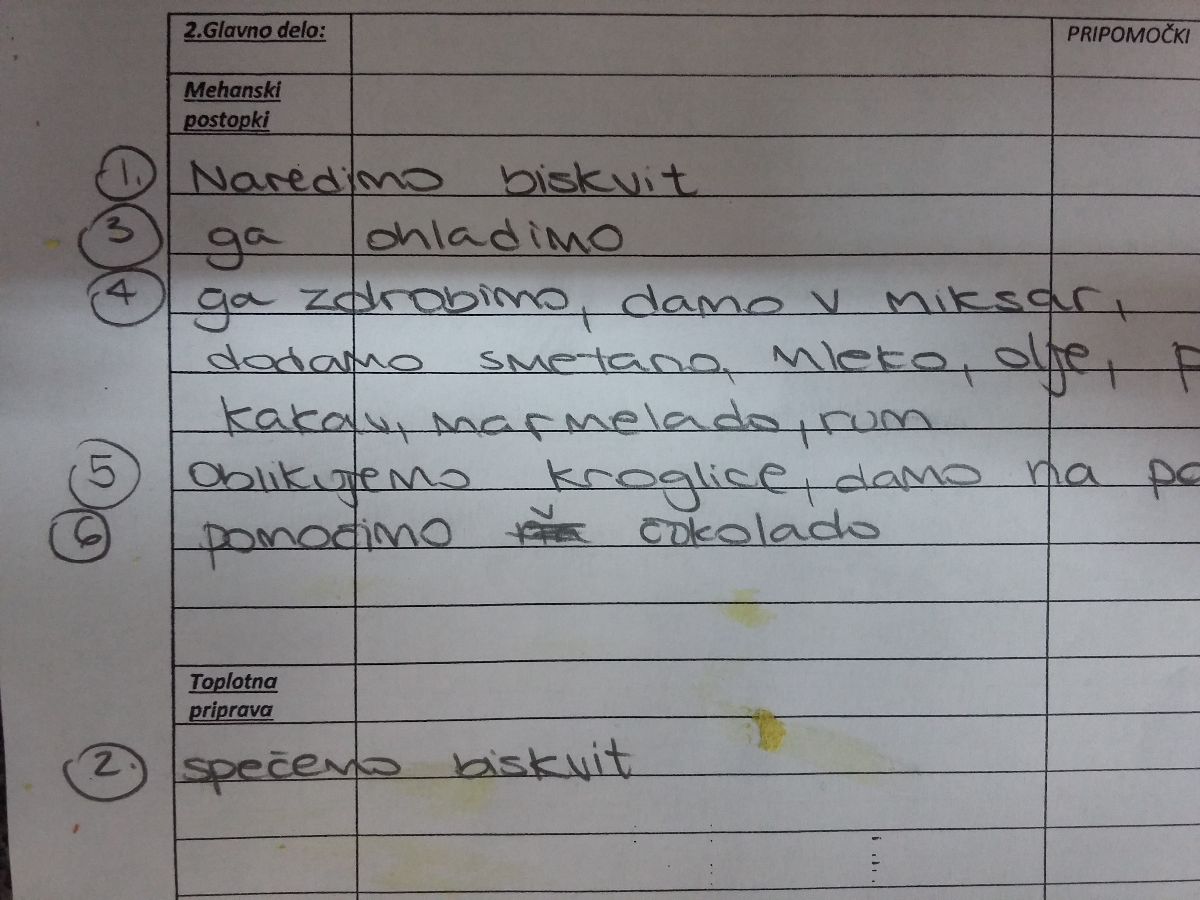 2.Glavno delo: PRIPOMOČKI
Mehanski
postopki
1. Naredimo biskvit
3 ga ohladimo
4 ga zdrobimo, damo v miksar,
dodamo smetano, mleko, olje,
kakav, marmelado, rum
5 Oblikujemo kroglice, damo na
6 pomočimo čokolado
Toplotna
priprava
2. spečemo biskvit